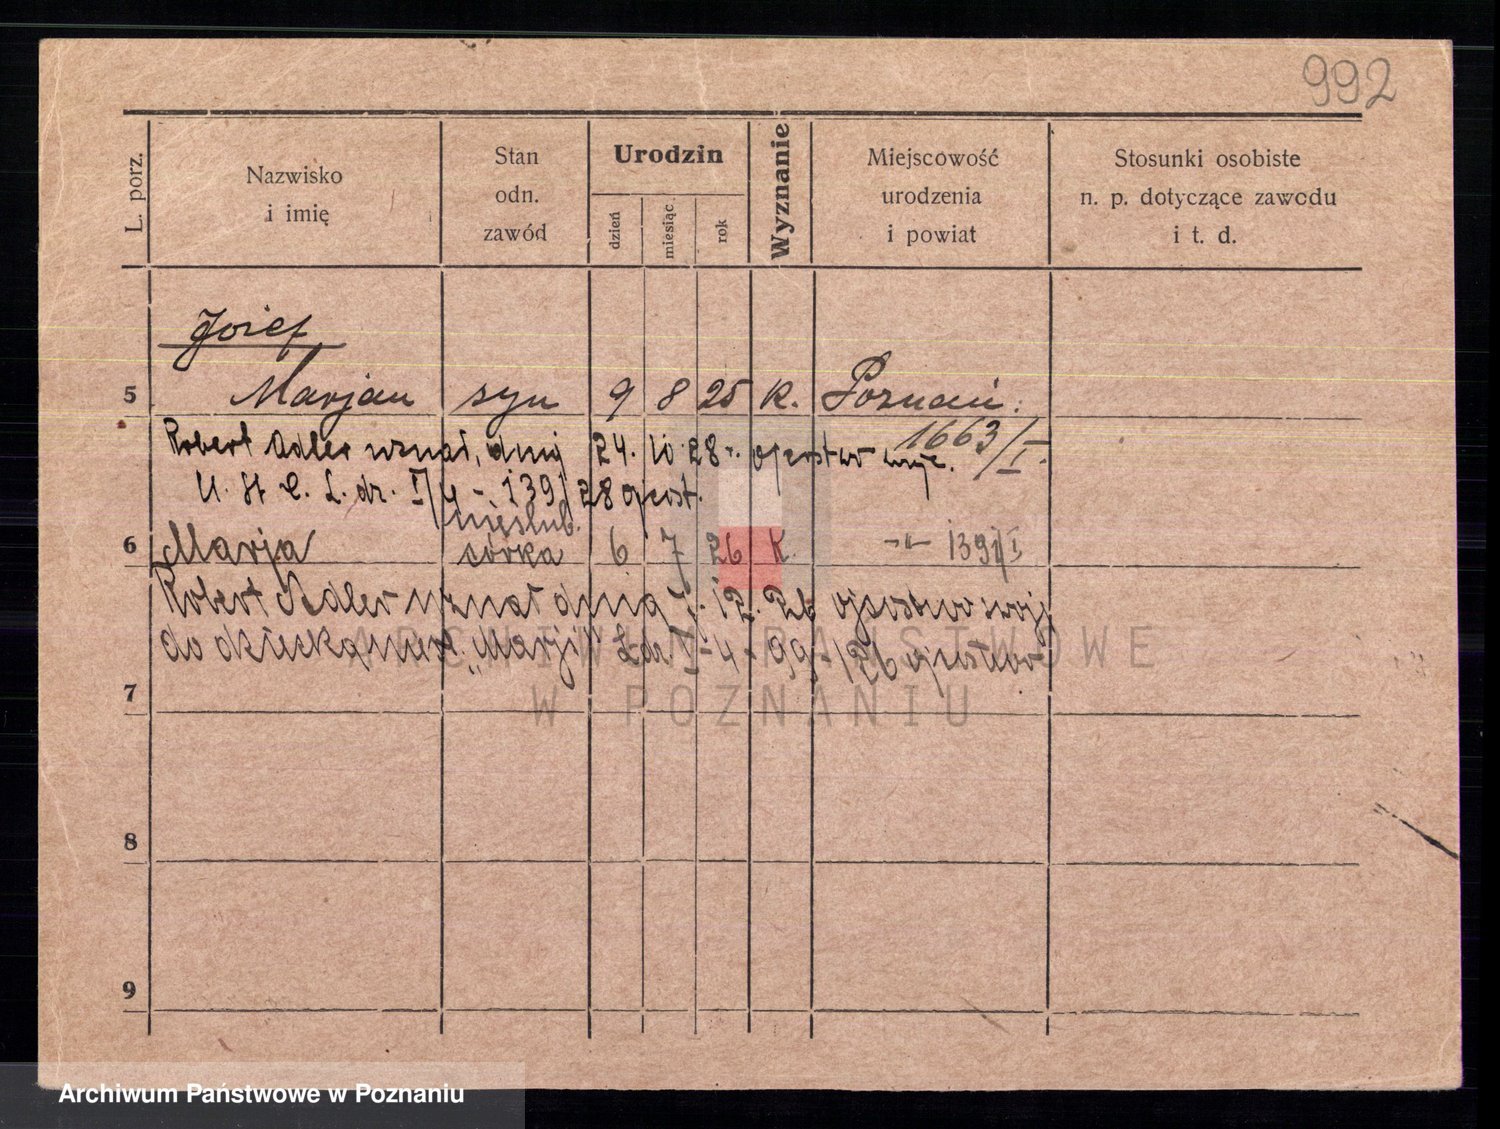 992
L. porz.
Nazwisko i imię
Stan odn. zawód
Urodzin
dzień
miesiąc
rok
Wyznanie
Miejscowość urodzenia i powiat
Stosunki osobiste n. p. dotyczące zawodu i t. d.
Józef
5 Marjan syn 9 8 25 K. Poznań.
1663/I.
Robert Adler uznał, dnia 24. 10 28 r. ojcostwo
U. St. C. L. dz. I/4 - 139/28
nieślub.
6 Marja córka 6 7 26 K -"- 1391/I
Robert Adler uznał dnia 7. 12. 26 ojcostwo swoje
do dziecka "Marji" L dz I-4-99-/26
7
8
9
ARCHIWUM PAŃSTWOWE
W POZNANIU
Archiwum Państwowe w Poznaniu